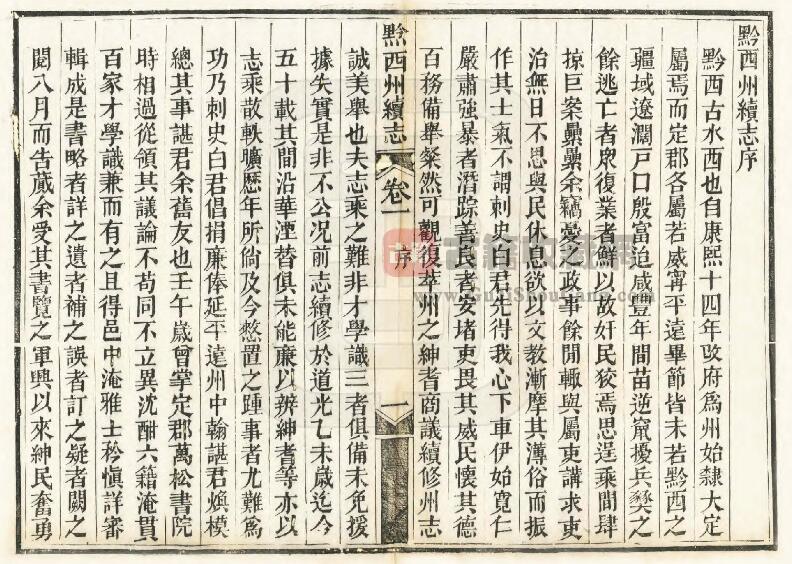 黔西州續志序
黔西古水西也自康熙十四年改府爲州始隸大定
屬焉而定郡各屬若威寧平遠畢節皆未若黔西之
疆域遼濶戸口殷富迨咸豐年間苗逆竄擾兵燹之
餘逃亡者夥復業者鮮以故奸民狡焉思逞乘間肆
掠巨案纍纍余竊憂之政事餘閒輒與屬吏講求吏
治無日不思與民休息欲以文教漸摩其薄俗而振
作其士氣不謂刺史白君先得我心下車伊始寬仁
嚴肅強暴者潛踪善良者安堵吏畏其威民懷其德
百務備舉粲然可觀復萃州之紳耆商議續修州志
黔西州續志 卷一 序 一
誠美舉也夫志乘之難非才學識三者俱備未免援
據失實是非不公况前志續修於道光乙未歲迄今
五十載其間沿革湮替俱未能亷以辨紳耆等亦以
志乘散軼曠歷年所倘及今憗置之踵事者尤難爲
功乃刺史白君倡捐廉俸延平遠州中翰諶君煥模
總其事諶君余舊友也壬午歲曾掌定郡萬松書院
時相過從領其議論不苟同不立異沈酣六籍淹貫
百家才學識兼而有之且得邑中淹雅士矜愼詳審
輯成是書略者詳之遺者補之誤者訂之疑者闕之
閱八月而告蕆余受其書覽之軍興以來紳民奮勇